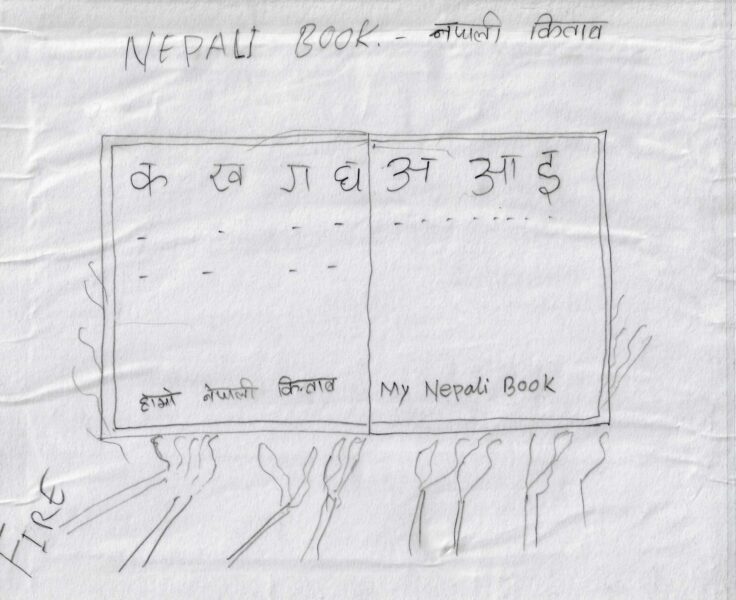 NEPALI BOOK. - नेपाली किताब
क ख ग घ अ आ इ
हाम्रो नेपाली किताब
My Nepali Book
FIRE